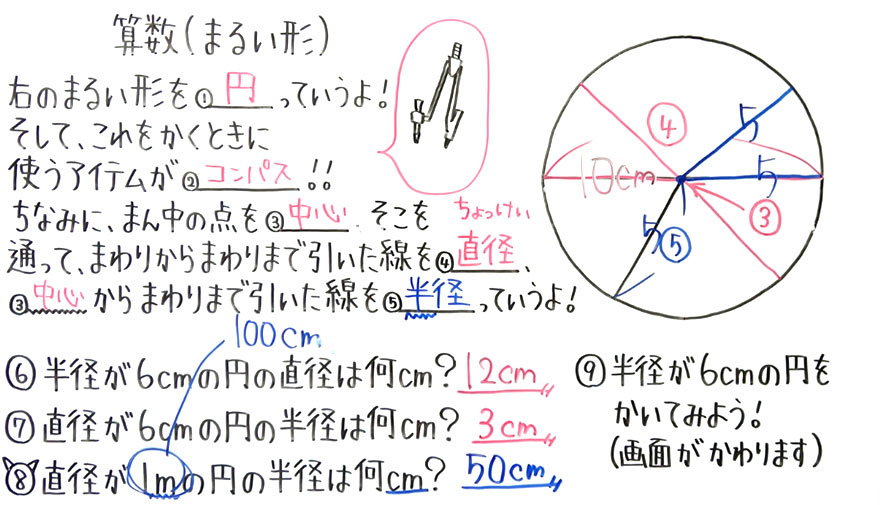 算数(まるい形)
右のまるい形を①円っていうよ!
そして、これをかくときに
使うアイテムが②コンパス!!
ちなみに、まん中の点を③中心 そこを
ちょっけい
通って、まわりからまわりまで引いた線を④直径、
③中心からまわりまで引いた線を⑤半径っていうよ!
100cm
⑥半径が6cmの円の直径は何cm?12cm
⑦直径が6cmの円の半径は何cm?3cm
⑧直径が1mの円の半径は何cm?50cm
④
5
10cm
5
③
5
⑤
⑨半径が6cmの円を
かいてみよう!
(画面がかわります)